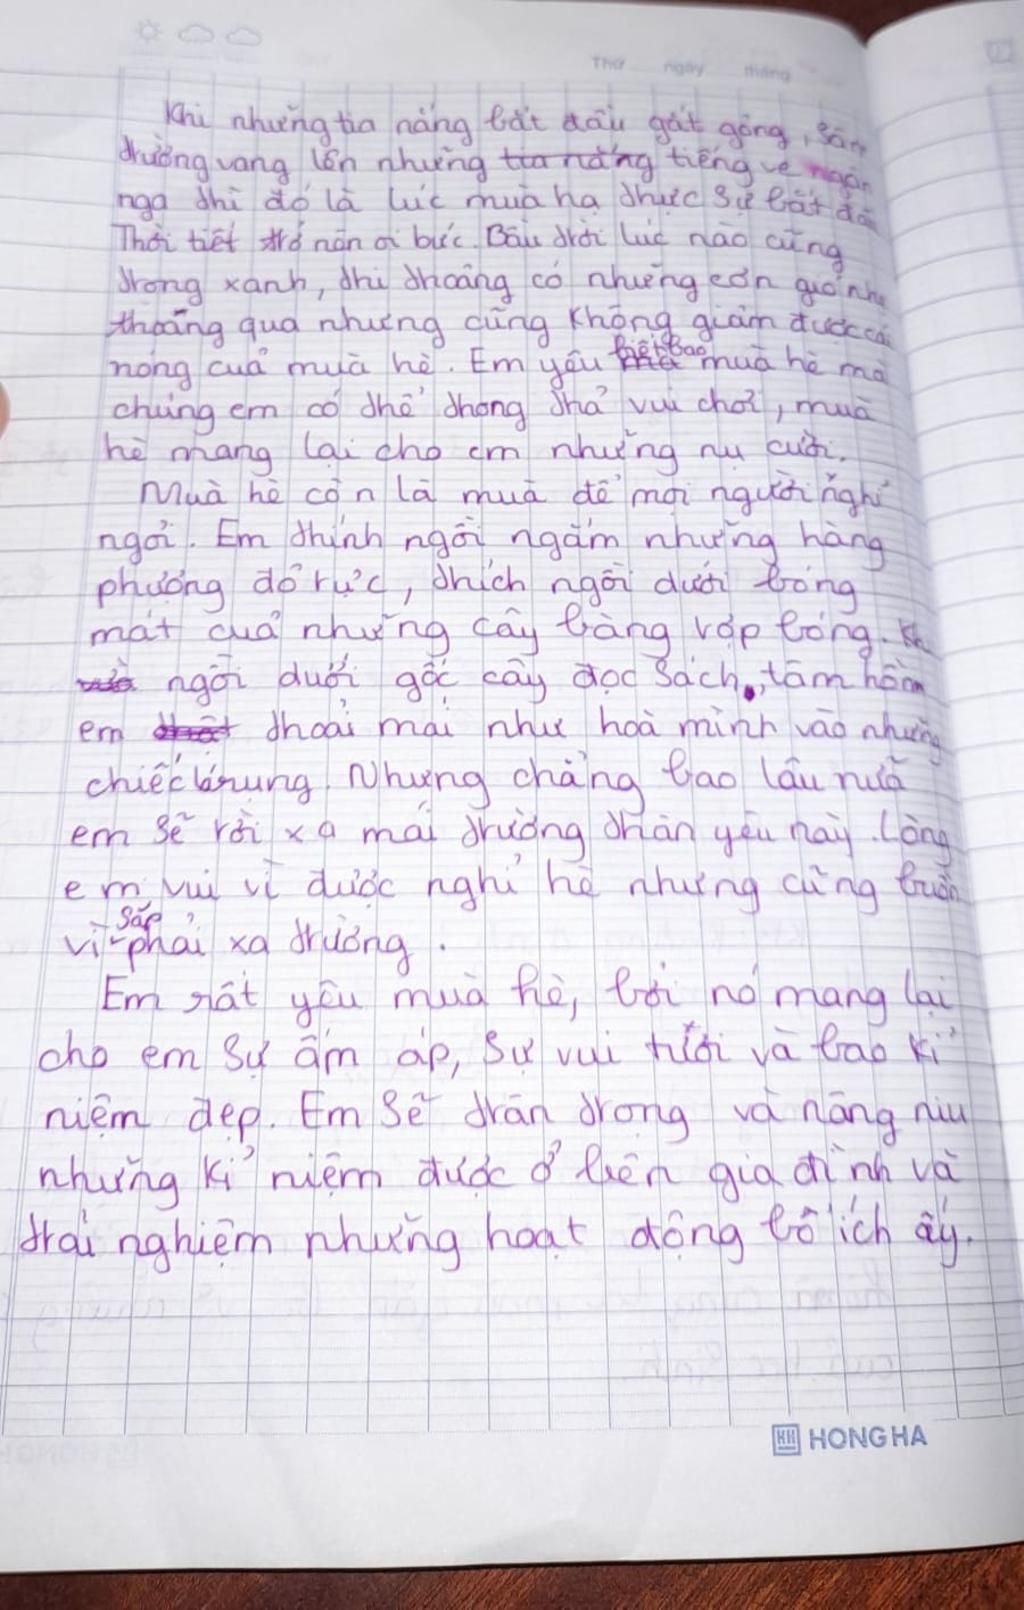 Thứ ngày tháng
Khi những tia nắng bắt đầu gắt gỏng, sân
trường vang lên những tia nắng tiếng ve ngân
nga thì đó là lúc mùa hạ thực sự bắt đầu
Thời tiết trở nên oi bức. Bầu trời lúc nào cũng
trong xanh, thi thoảng có những cơn gió nhẹ
thoảng qua nhưng cũng không giảm được cái
nóng của mùa hè. Em yêu biết bao mùa hè mà
chúng em có thể thong thả vui chơi, mùa
hè mang lại cho em những nụ cười.
Mùa hè còn là mùa để mọi người nghỉ
ngơi. Em thính ngồi ngắm những hàng
phượng đỏ rực, thích ngồi dưới bóng
mát của những cây bàng rợp bóng. Khi
ngồi dưới gốc cây đọc sách, tâm hồn
em thoải mái như hoà mình vào những
chiếc lá rụng. Nhưng chẳng bao lâu nữa
em sẽ rời xa mái trường thân yêu này. Lòng
em vui vì được nghỉ hè nhưng cũng buồn
vì sắp phải xa trường.
Em rất yêu mùa hè, bởi nó mang lại
cho em sự ấm áp, sự vui tươi và bao kỉ
niệm đẹp. Em sẽ trân trọng và nâng niu
những kỉ niệm được ở bên gia đình và
trải nghiệm những hoạt động bổ ích ấy.
HONG HA